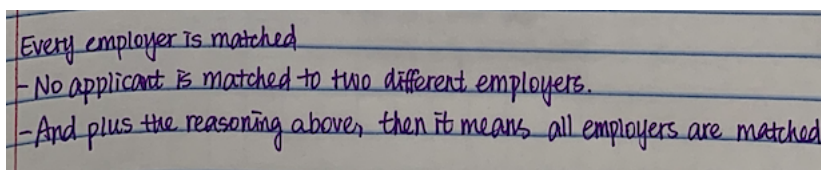 Every employer is matched
-No applicant is matched to two different employers.
-And plus the reasoning above, then it means all employers are matched